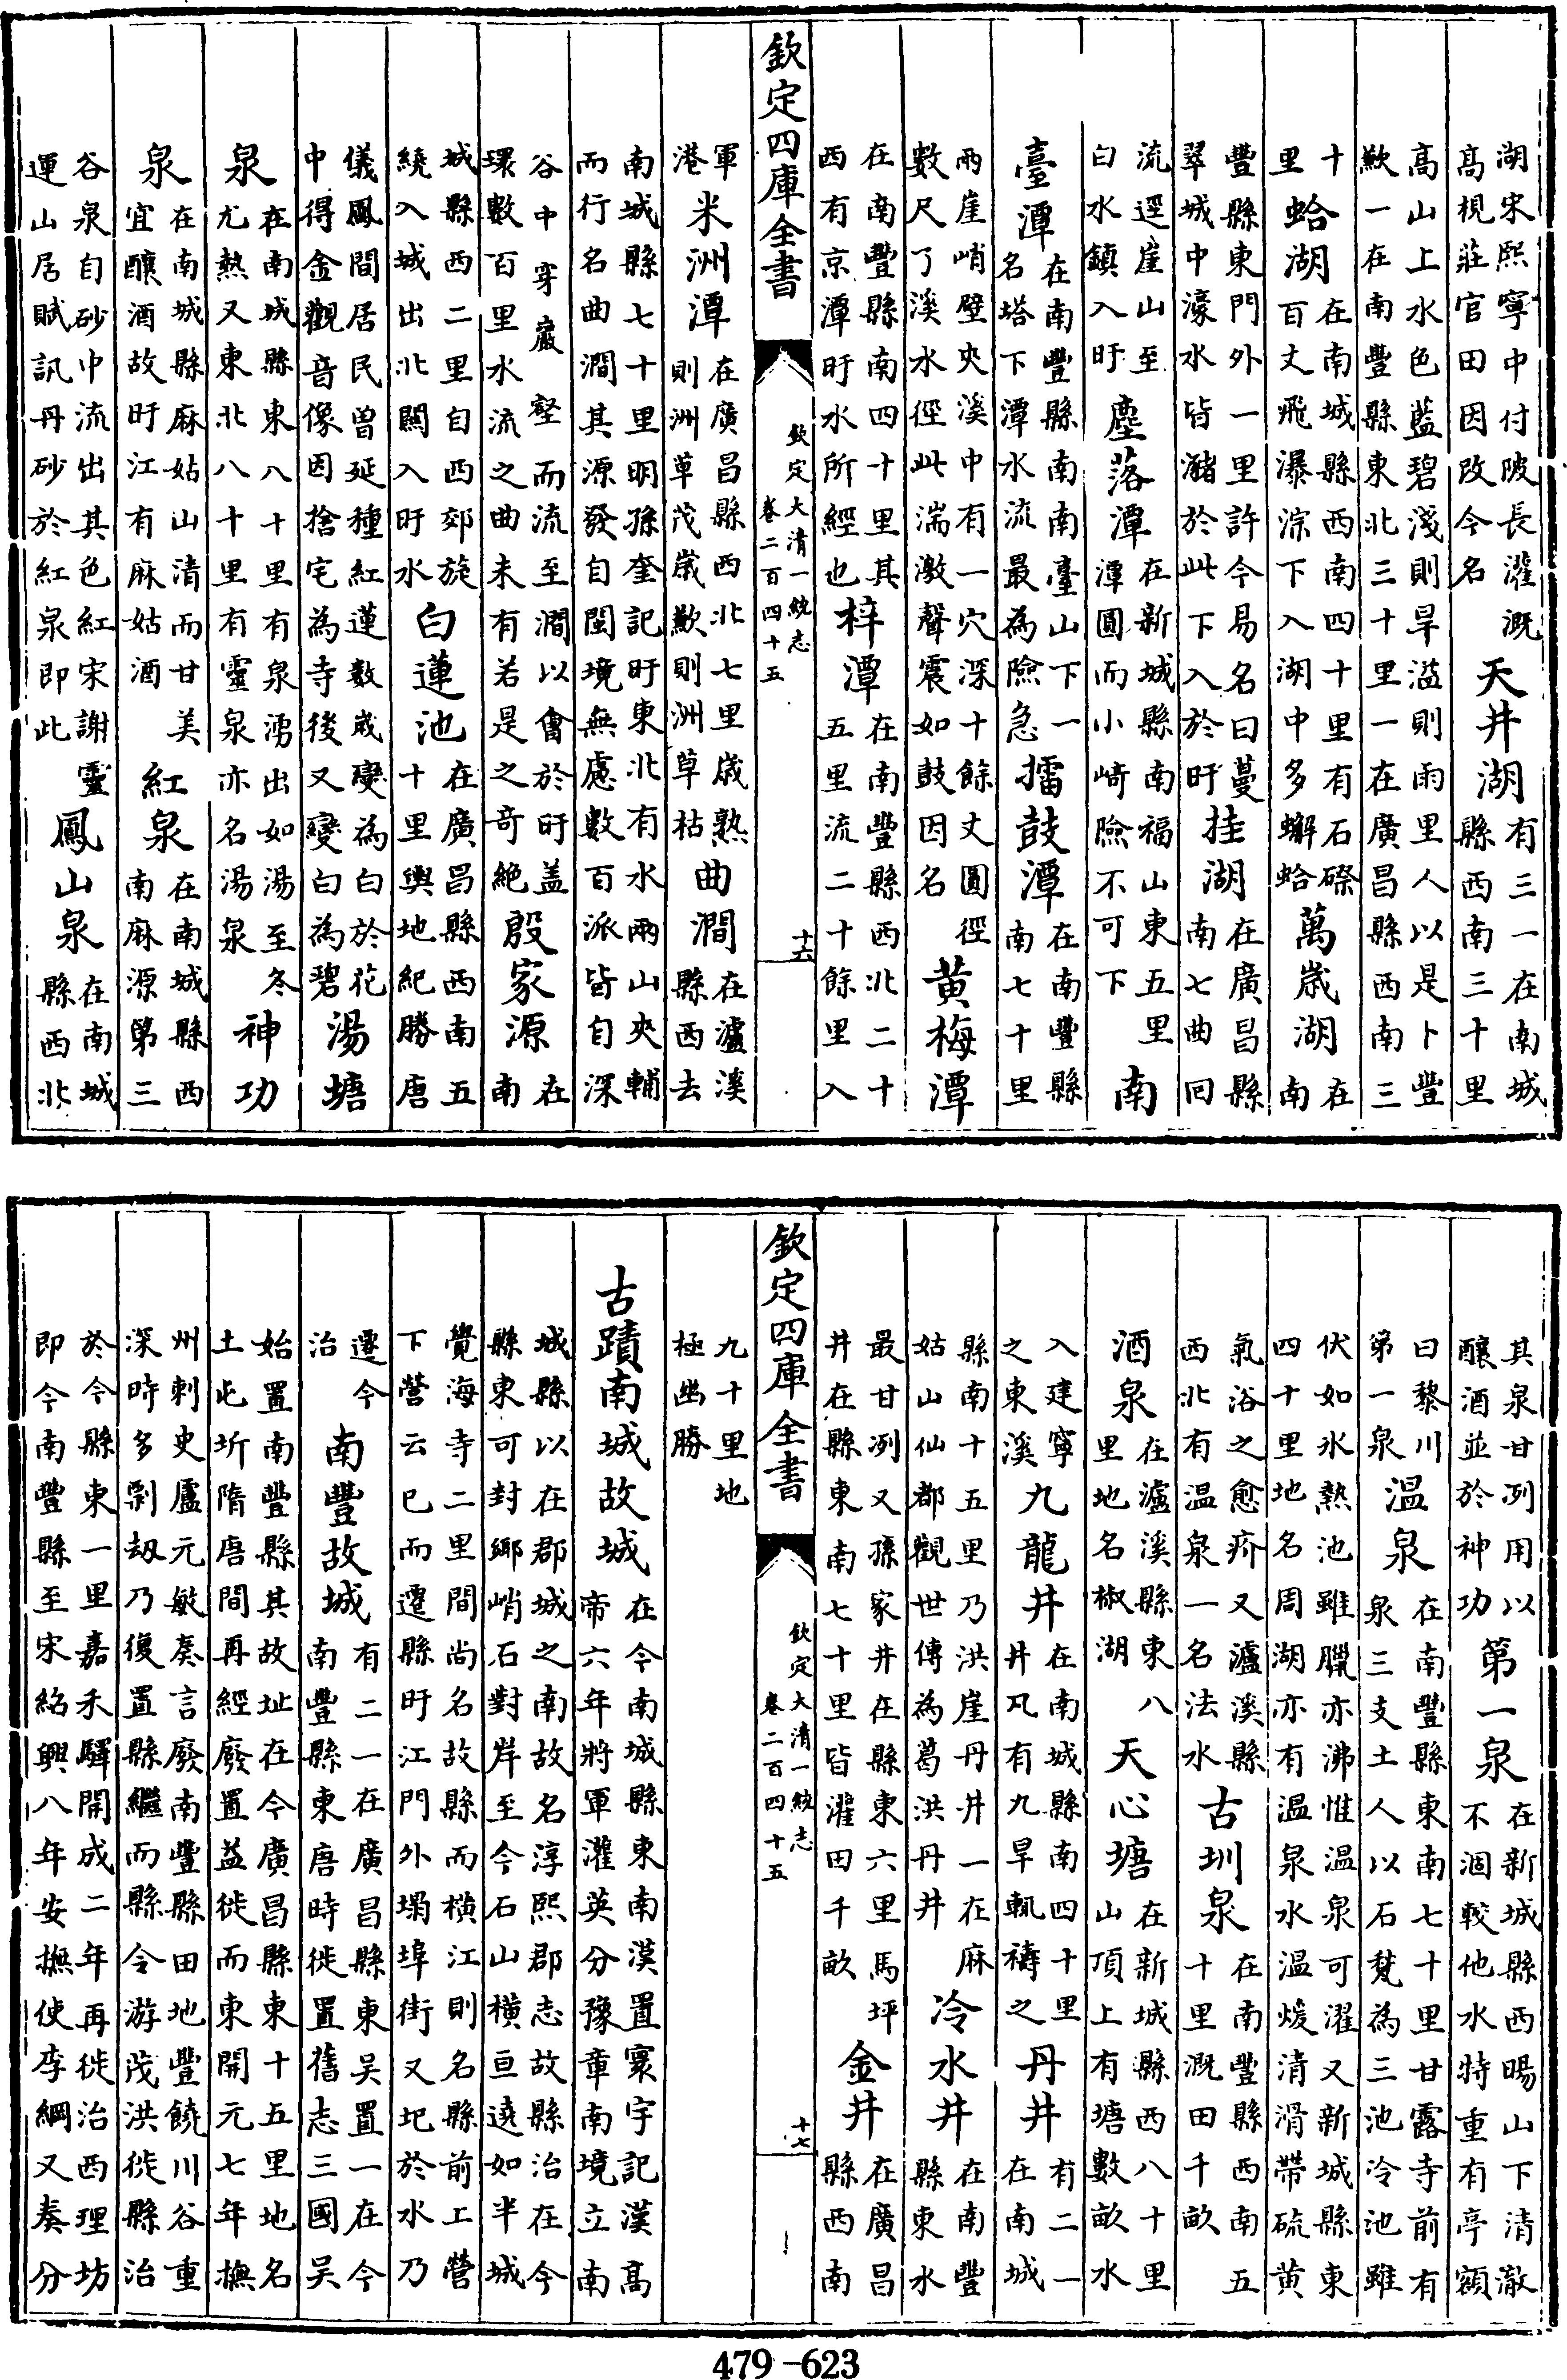 湖宋熙寧中付陂長濯溉
髙梘莊官田因改今名
天井湖
有三一在南城
縣西南三十里
髙山上水色藍碧淺則旱溢則雨里人以是卜豐
歉一在南豐縣東北三十里一在廣昌縣西南三
十
里
蛤湖
在南城縣西南四十里有石磜
百丈飛瀑淙下入湖中多蠏蛤
萬歲湖
在
南
豐縣東門外一里許今易名曰蔓
翠城中濠水皆瀦於此下入於旴
挂湖
在廣昌縣
南七曲回
流逕崖山至
白水鎮入旴
塵落潭
在新城縣南福山東五里
潭圓而小﨑險不可下
南
臺潭
在南豐縣南南臺山下一
名塔下潭水流最為險急
擂鼓潭
在南豐縣
南七十里
兩崖峭壁夾溪中有一穴深十餘丈圓徑
數尺了溪水徑此湍激聲震如鼓因名
黄梅潭
在南豐縣南四十里其
西有京潭旴水所經也
梓潭
在南豐縣西北二十
五里流二十餘里入
欽定四庫全書
欽定大清一統志
卷二百四十五
十六
軍
港
米洲潭
在廣昌縣西北七里歲熟
則洲草茂歲歉則洲草枯
曲澗
在瀘溪
縣西去
南城縣七十里明孫奎記旴東北有水兩山夾輔
而行名曲澗其源發自閩境無慮數百派皆自深
谷中穿巖壑而流至澗以會於旴盖
環數百里水流之曲未有若是之奇絶
殷家源
在
南
城縣西二里自西郊旋
繞入城出北關入旴水
白蓮池
在廣昌縣西南五
十里輿地紀勝唐
儀鳳間居民曾延種紅蓮數歲變為白於花
中得金觀音像因捨宅為寺後又變白為碧
湯塘
泉
在南城縣東八十里有泉湧出如湯至冬
尤熱又東北八十里有靈泉亦名湯泉
神功
泉
在南城縣麻姑山清而甘美
宜釀酒故旴江有麻姑酒
紅泉
在南城縣西
南麻源第三
谷泉自砂中流出其色紅宋謝靈
運山居賦訊丹砂於紅泉即此
鳳山泉
在南城
縣西北
其泉甘冽用以
釀酒並於神功
第一泉
在新城縣西暘山下清澈
不涸較他水特重有亭額
曰黎川
第一泉
温泉
在南豐縣東南七十里甘露寺前有
泉三支土人以石甃為三池冷池雖
伏如氷熱池雖臘亦沸惟温泉可濯又新城縣東
四十里地名周湖亦有温泉水温煖清滑帶硫黄
氣浴之愈疥又瀘溪縣
西北有温泉一名法水
古圳泉
在南豐縣西南五
十里溉田千畝
酒泉
在瀘溪縣東八
里地名椒湖
天心塘
在新城縣西八十里
山頂上有塘數畝水
入建寧
之東溪
九龍井
在南城縣南四十里
井凡有九旱輒禱之
丹井
有二一
在南城
縣南十五里乃洪崖丹井一在麻
姑山仙都觀世傳為葛洪丹井
冷水井
在南豐
縣東水
最甘冽又孫家井在縣東六里馬坪
井在縣東南七十里皆濯田千畝
金井
在廣昌
縣西南
欽定四庫全書
欽定大清一統志
卷二百四十五
十七
九十里地
極幽勝
古蹟南城故城
在今南城縣東南漢置寰宇記漢髙
帝六年將軍灌英分豫章南境立南
城縣以在郡城之南故名淳熙郡志故縣治在今
縣東可封鄉峭石對岸至今石山横亘遶如半城
覺海寺二里間尚名故縣而横江則名縣前上營
下營云已而遷縣旴江門外塌埠街又圮於水乃
遷今
治
南豐故城
有二一在廣昌縣東吳置一在今
南豐縣東唐時徙置舊志三國吳
始置南豐縣其故址在今廣昌縣東十五里地名
土圯圻隋唐間再經廢置益徙而東開元七年撫
州刺史盧元敏奏言廢南豐縣田地豐饒川谷重
深時多剽刼乃復置縣繼而縣令游茂洪徙縣治
於今縣東一里嘉禾驛開成二年再徙治西理坊
即今南豐縣至宋紹興八年安撫使李綱又奏分
479-623